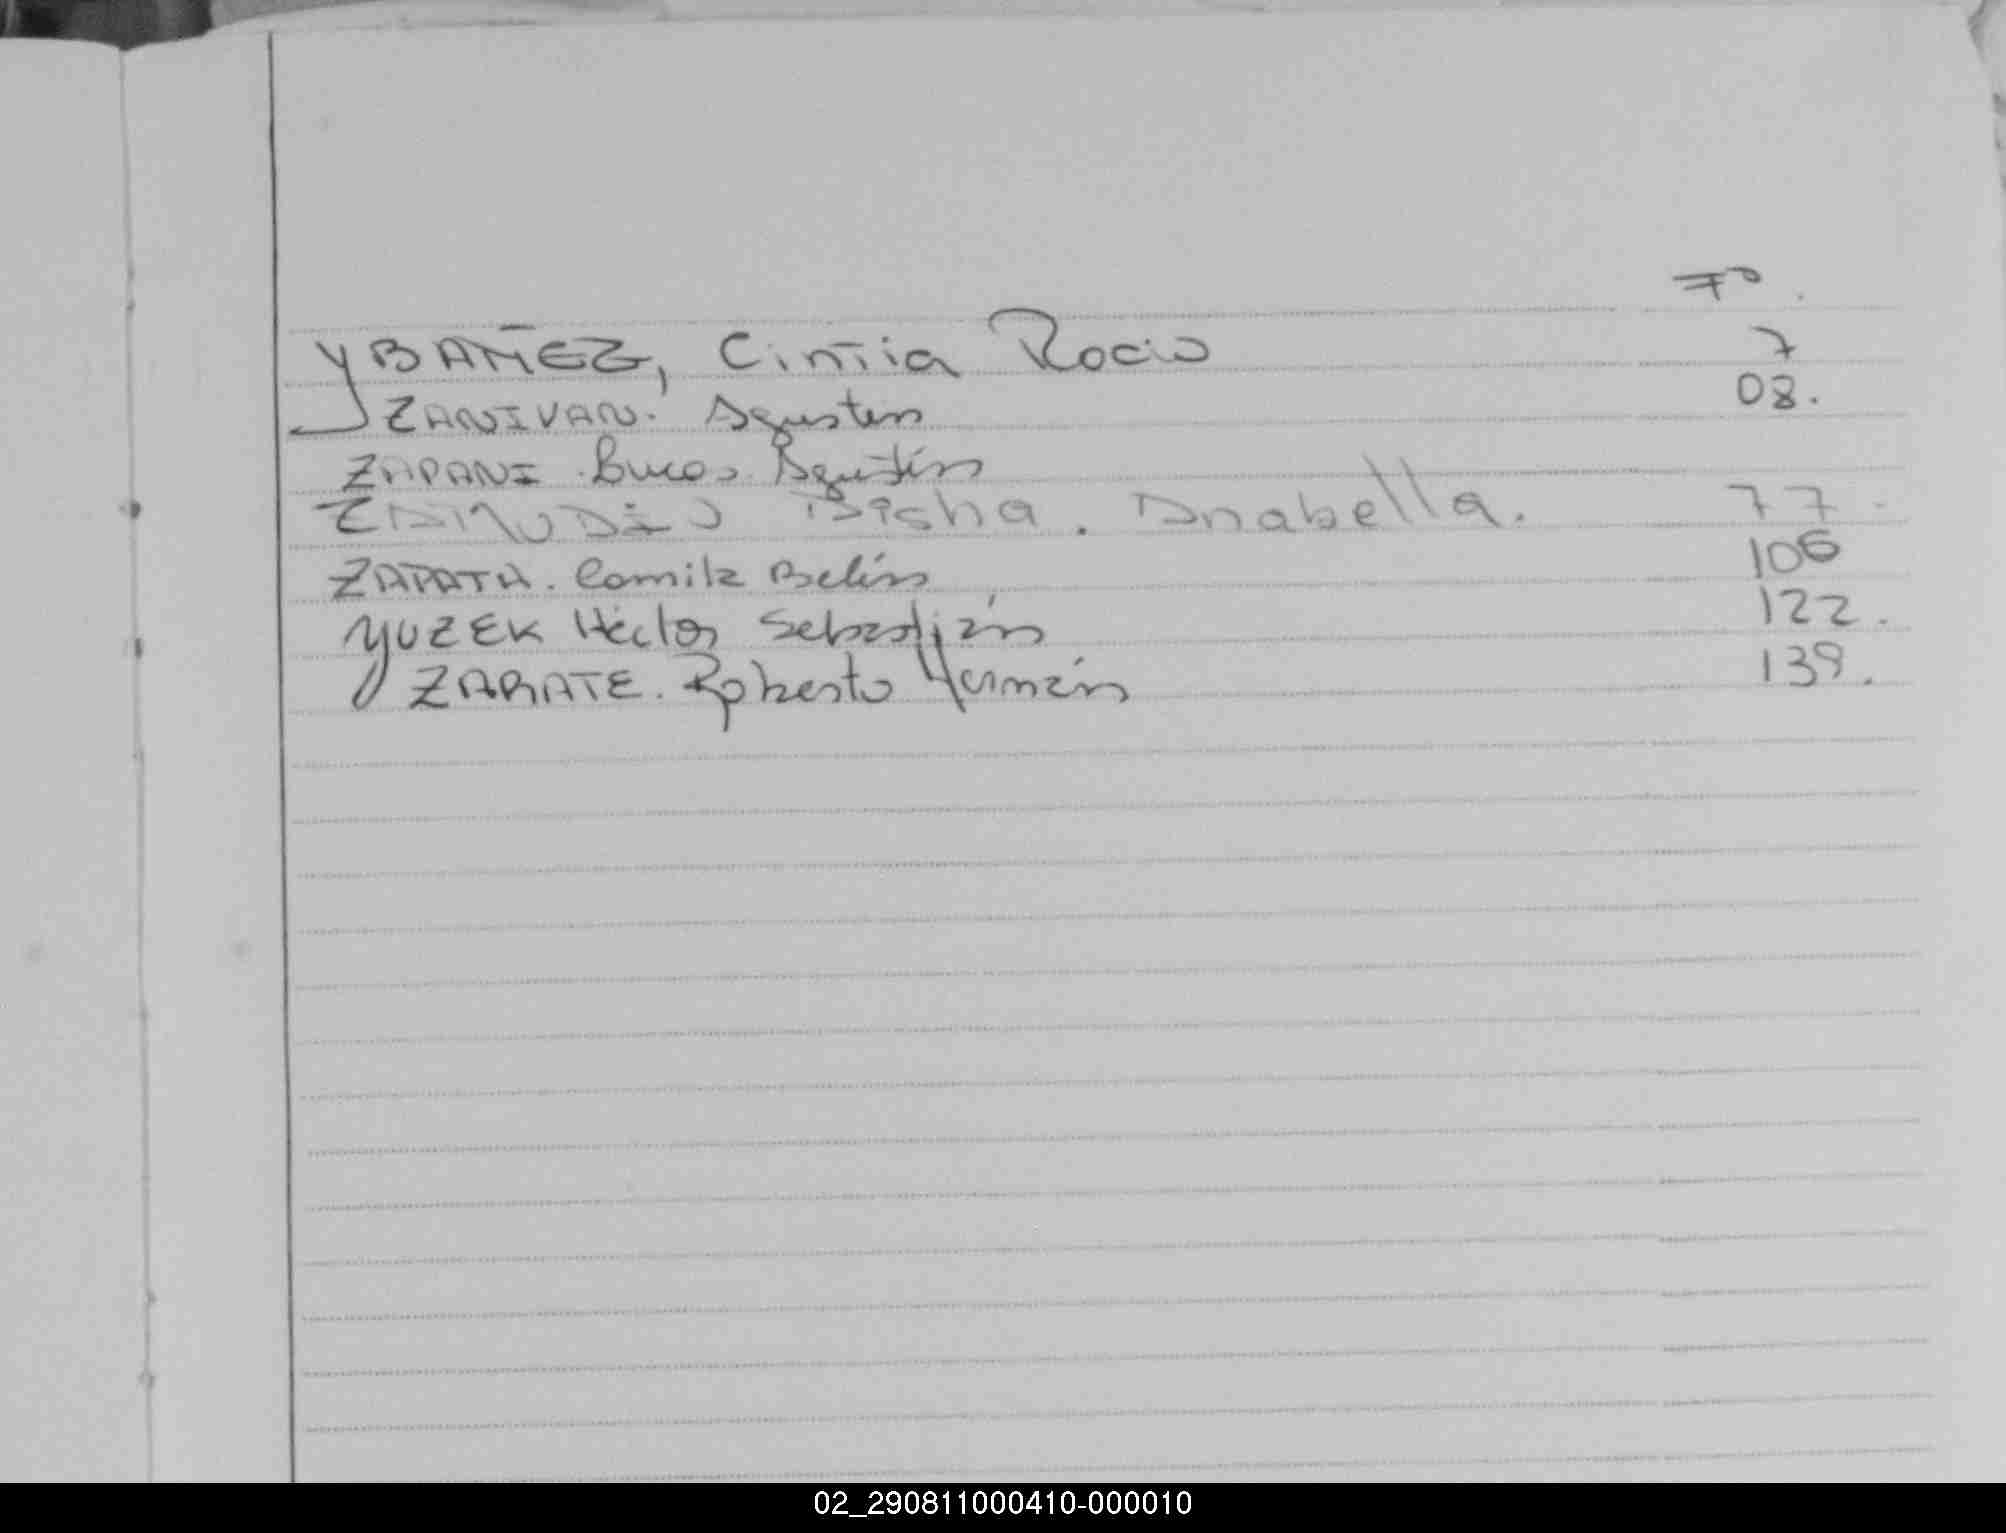 Fº.
YBAÑEZ, Cintia Rocio 7
ZANIVAN. Agustin 08.
ZAPANI. Agustín
Aisha. Anabella. 77.
ZAPATA. Camila Belén 106
YUZEK Héctor Sebastián 122.
ZARATE. Roberto Hernán 139.
02_290811000410-000010